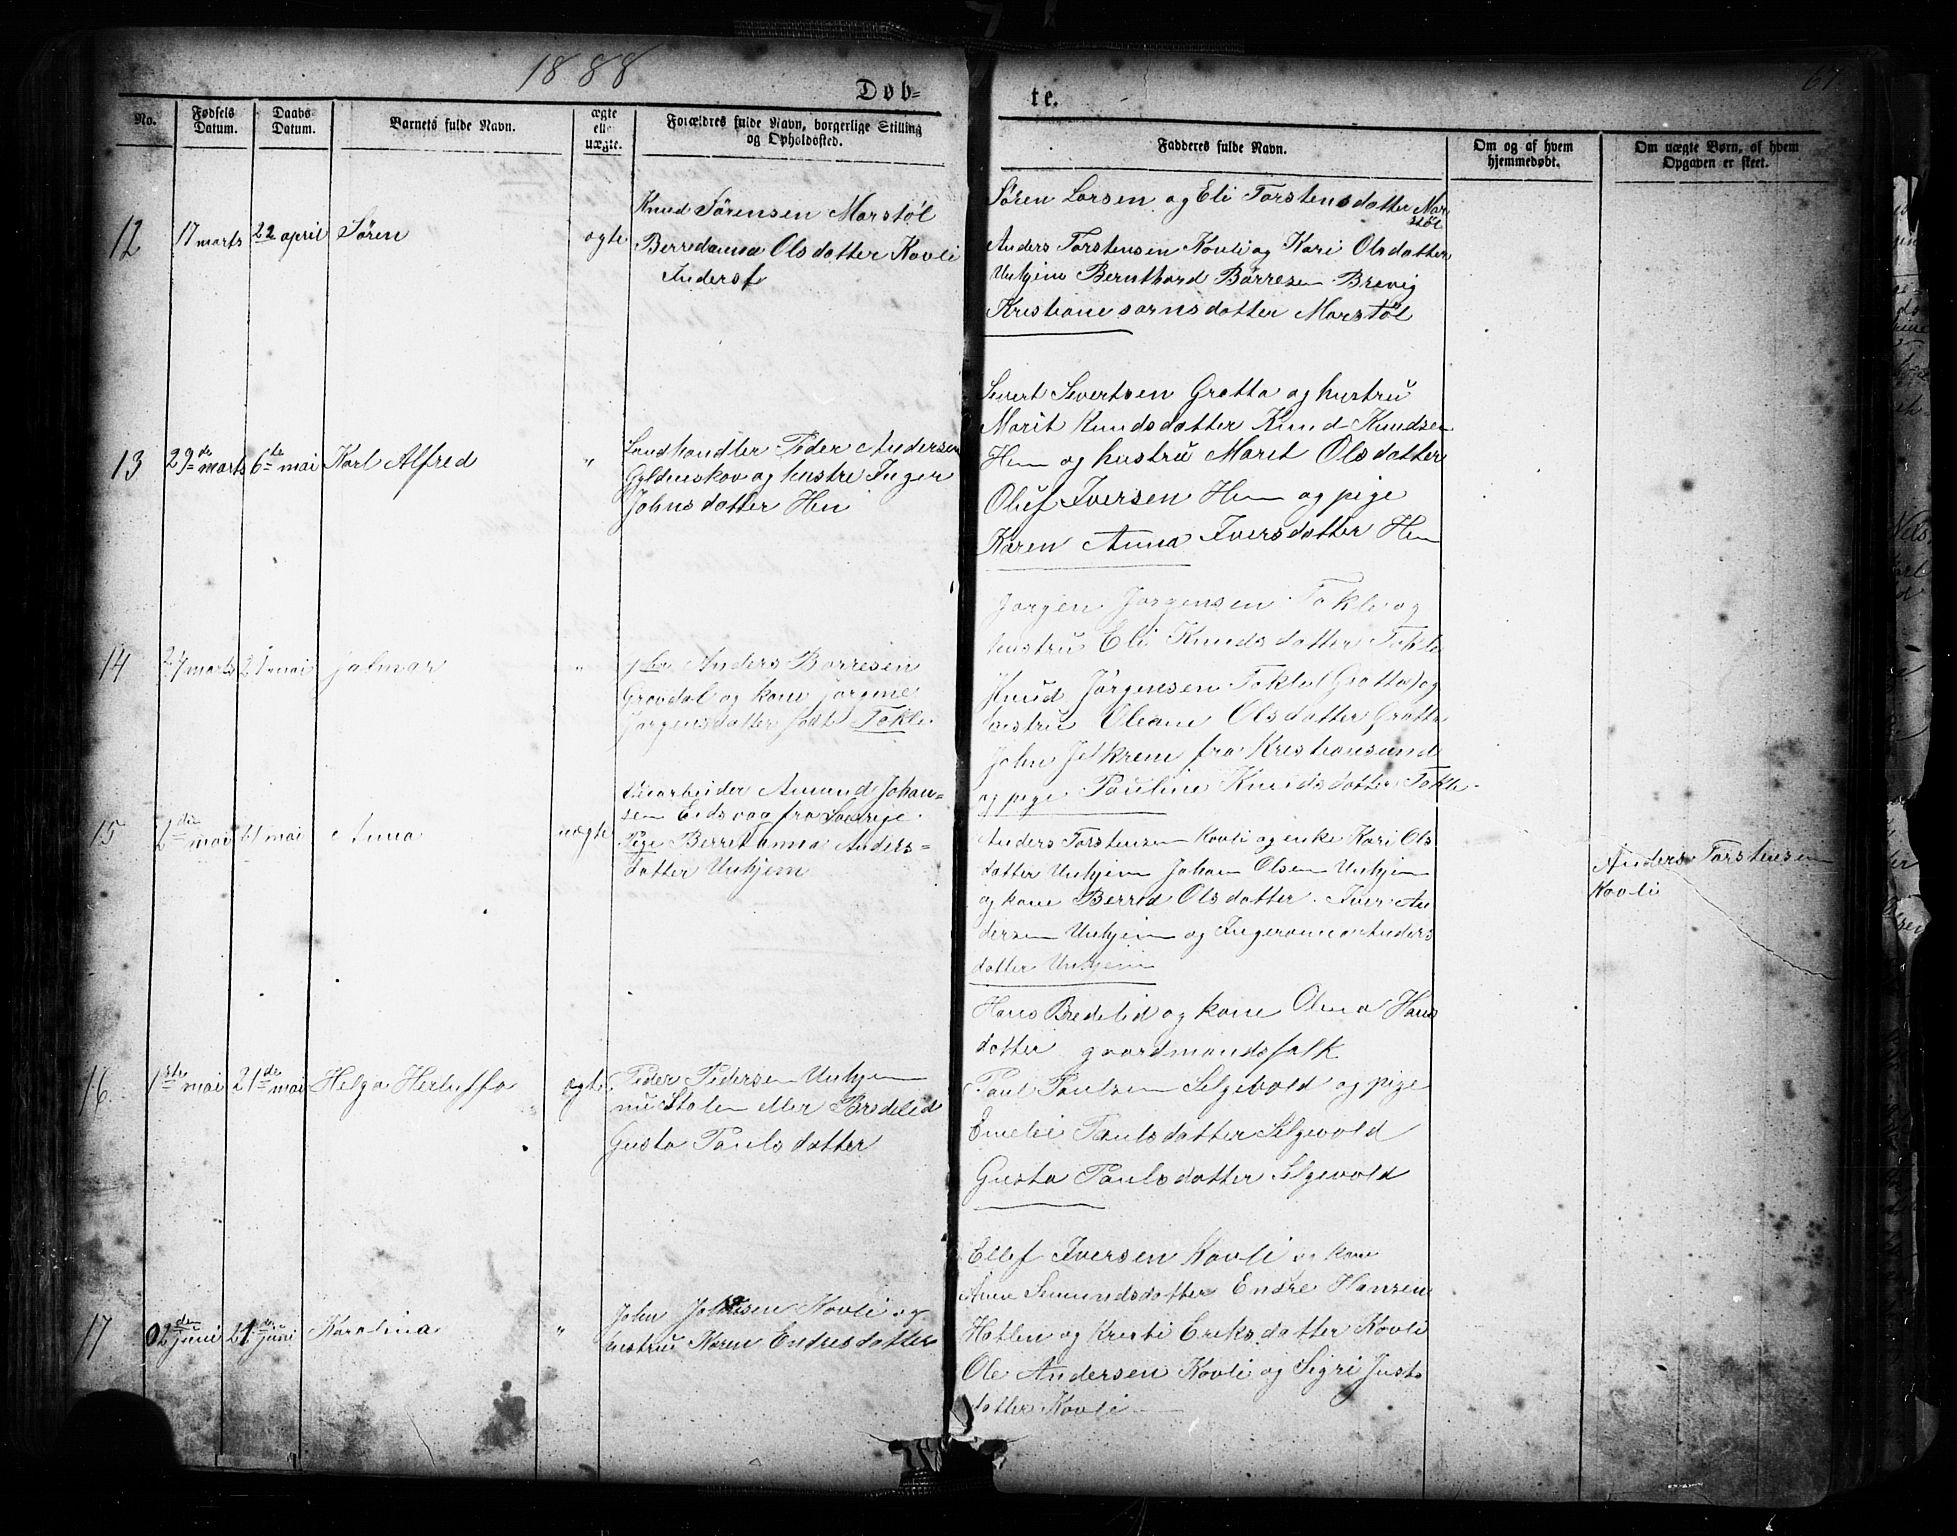 1888
67
Døb-
te.
No.
Fødsels Datum.
Daabs Datum.
Barnets fulde Navn.
ægte eller uægte.
Forældres fulde Navn, borgerlige Stilling og Opholdssted.
Faddernes fulde Navn.
Om og af hvem hjemmedøbt.
Om uægte Børn, af hvem Opgaven er skeet.
12
17 marts
22 april
Søren
ægte
Knud Sørensen Morstøl
Berredanna Olsdatter Kovli
Søren Larsen og Eli Torstensdatter Mor
støl
Anders Torstensen Kovli og Kari Olsdatter
Unhjem Bernthard Børresen Brevig
Kristiane sørnsdatter Morstøl
13
29de marts
6te mai
Karl Alfred
"
Landhandler Peder Andersen
Gyldenskov og hustru Inger
Johnsdatter Hen
Sivert Sivertsen Grøtta og hustru
Marit Knudsdatter Knud Knudsen
Hen og hustru Marit Olsdatter
Oluf Iversen Hen og pige
Karen Anna Iversdatter Hen
14
27 marts
21 mai
Jalmar
"
Anders Børresen
Grovdal og kone Jørgine
Jørgensdatter født Tokle.
Jørgen Jørgensen Tokle og
hustru Eli Knudsdatter Tokle
Knud Jørgensen Tokle (Grøtta) og
hustru Oleane Olsdatter Grøtta
John Jelkrem fra Kristiansund
og pige Pauline Knudsdatter Tokle.
15
2den mai
21 mai
Anna
uægte
Amund Johan=
sen Eidsvaag fra Sverige.
Pige Berret anna Anders=
datter Unhjem
Anders Torstensen Kovli og enke Kari Ols
datter Unhjem Johan Olsen Unhjem
og kone Berred Olsdatter. Iver An
dersen Unhjem og Ingeranna Anders
datter Unhjem
Anders Torstensen
Kovli
16
1ste mai
21de mai
Helga Herluffa
ægte
Peder Pedersen Unhjem
nu Stolen eller Bredelid
Gusta Paulsdatter
Hans Bredelid og kone Olma Hans
datter gaardmandsfolk
Paul Paulsen Selgevold og pige
Emelie Paulsdatter Selgevold
Gusta Paulsdatter Selgevold
17
02den juni
21de juni
Karolina
"
John Johnsen Kovli og
hustru Karen Endresdatter
Ellef Iversen Kovli og kone
Anne Semundsdatter Endre Hansen
Hatlen og Kristi Eriksdatter Kovli
Ole Andersen Kovli og Sigri Justs
datter Kovli